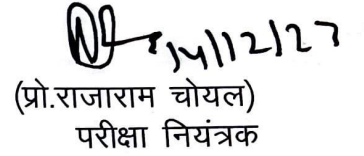 14/12/23
(प्रो.राजाराम चोयल)
परीक्षा नियंत्रक